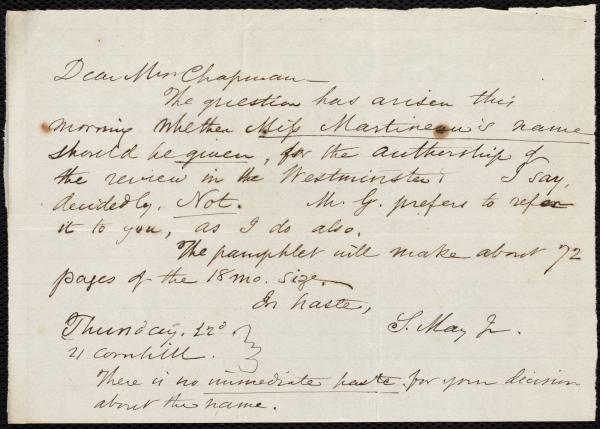 Dear Mrs Chapman—
The question has arisen this
morning whether Miss Martineau's name
should be given, for the authorship of
the review in the Westminster. I say,
decidedly, Not. Mr. G. prefers to refer
it to you, as I do also.
The pamphlet will make about 72
pages of the 18 mo. size.
In haste,
Thursday. 22d S. May Jr.
21 Cornhill.
There is no immediate haste for your decision
about the name.